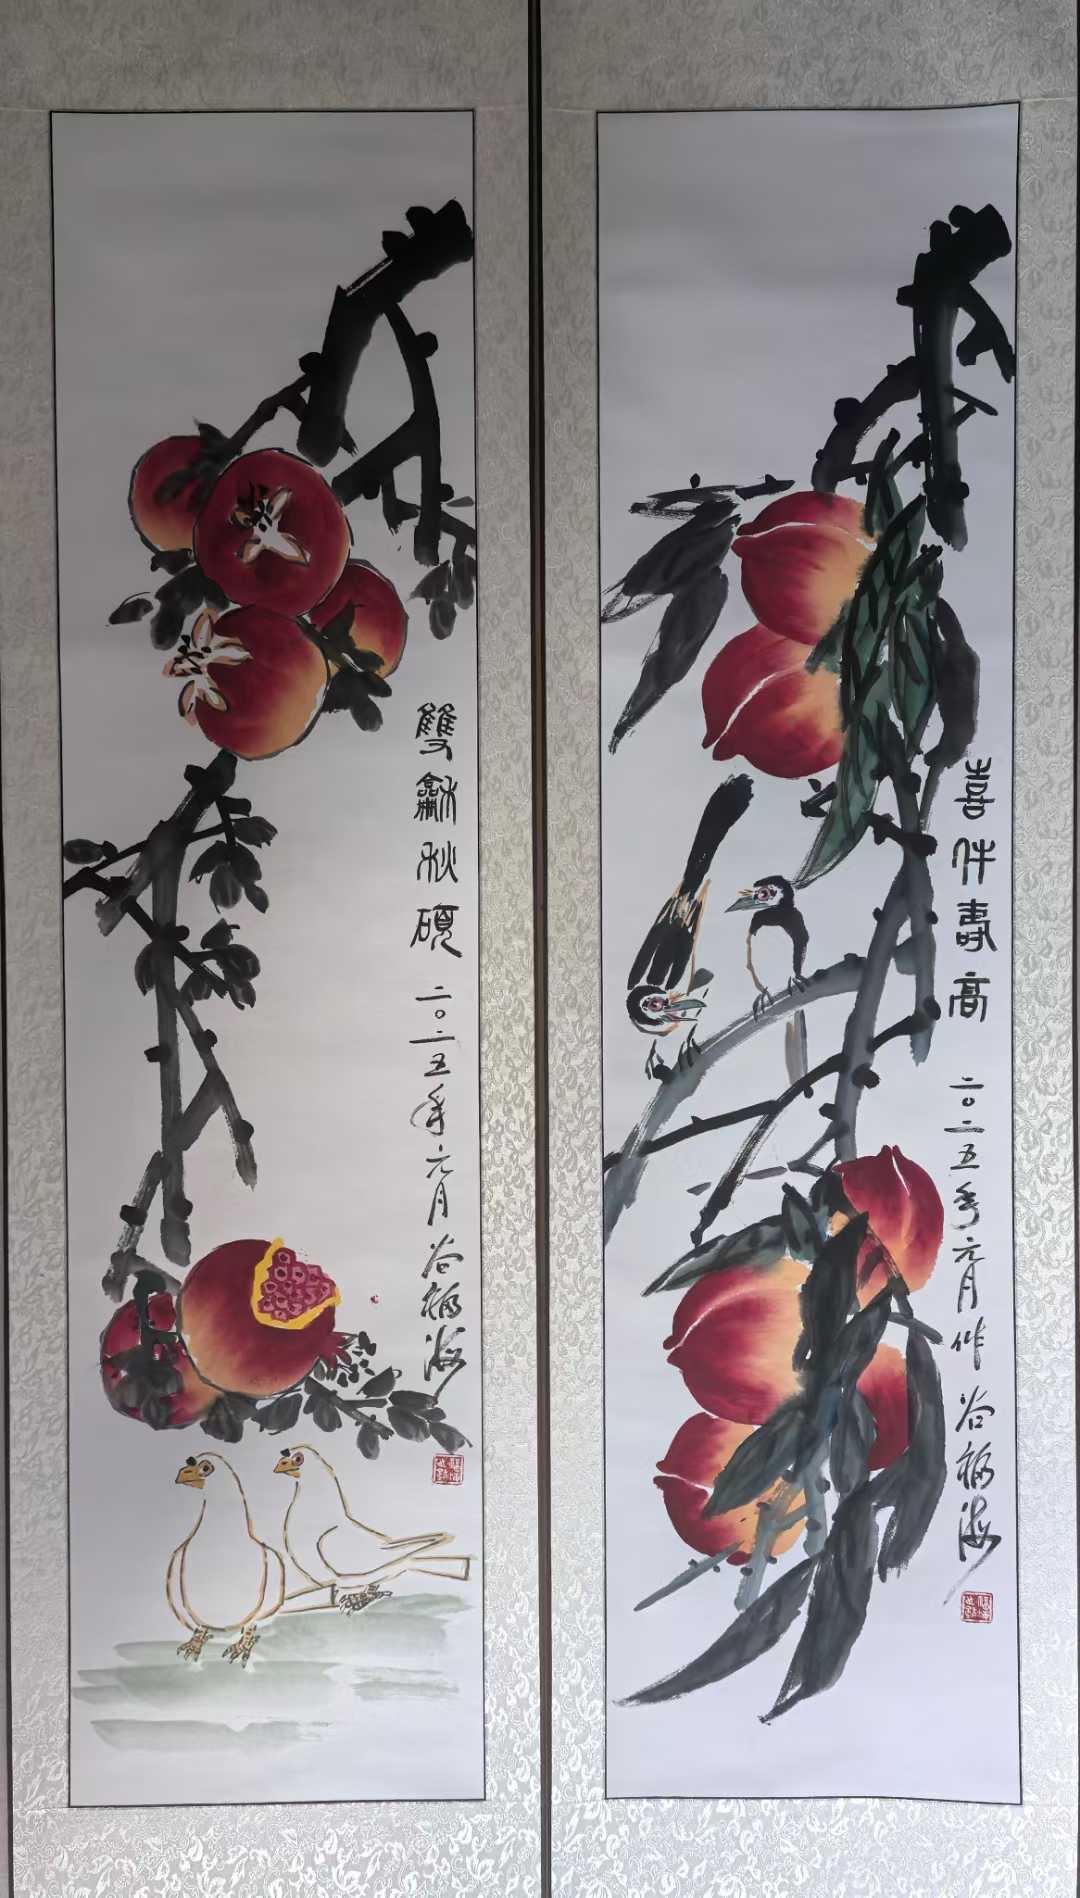 喜伴壽高 二〇二五年元月作 谷福海
雙龢秋碩 二〇二五年元月 谷福海